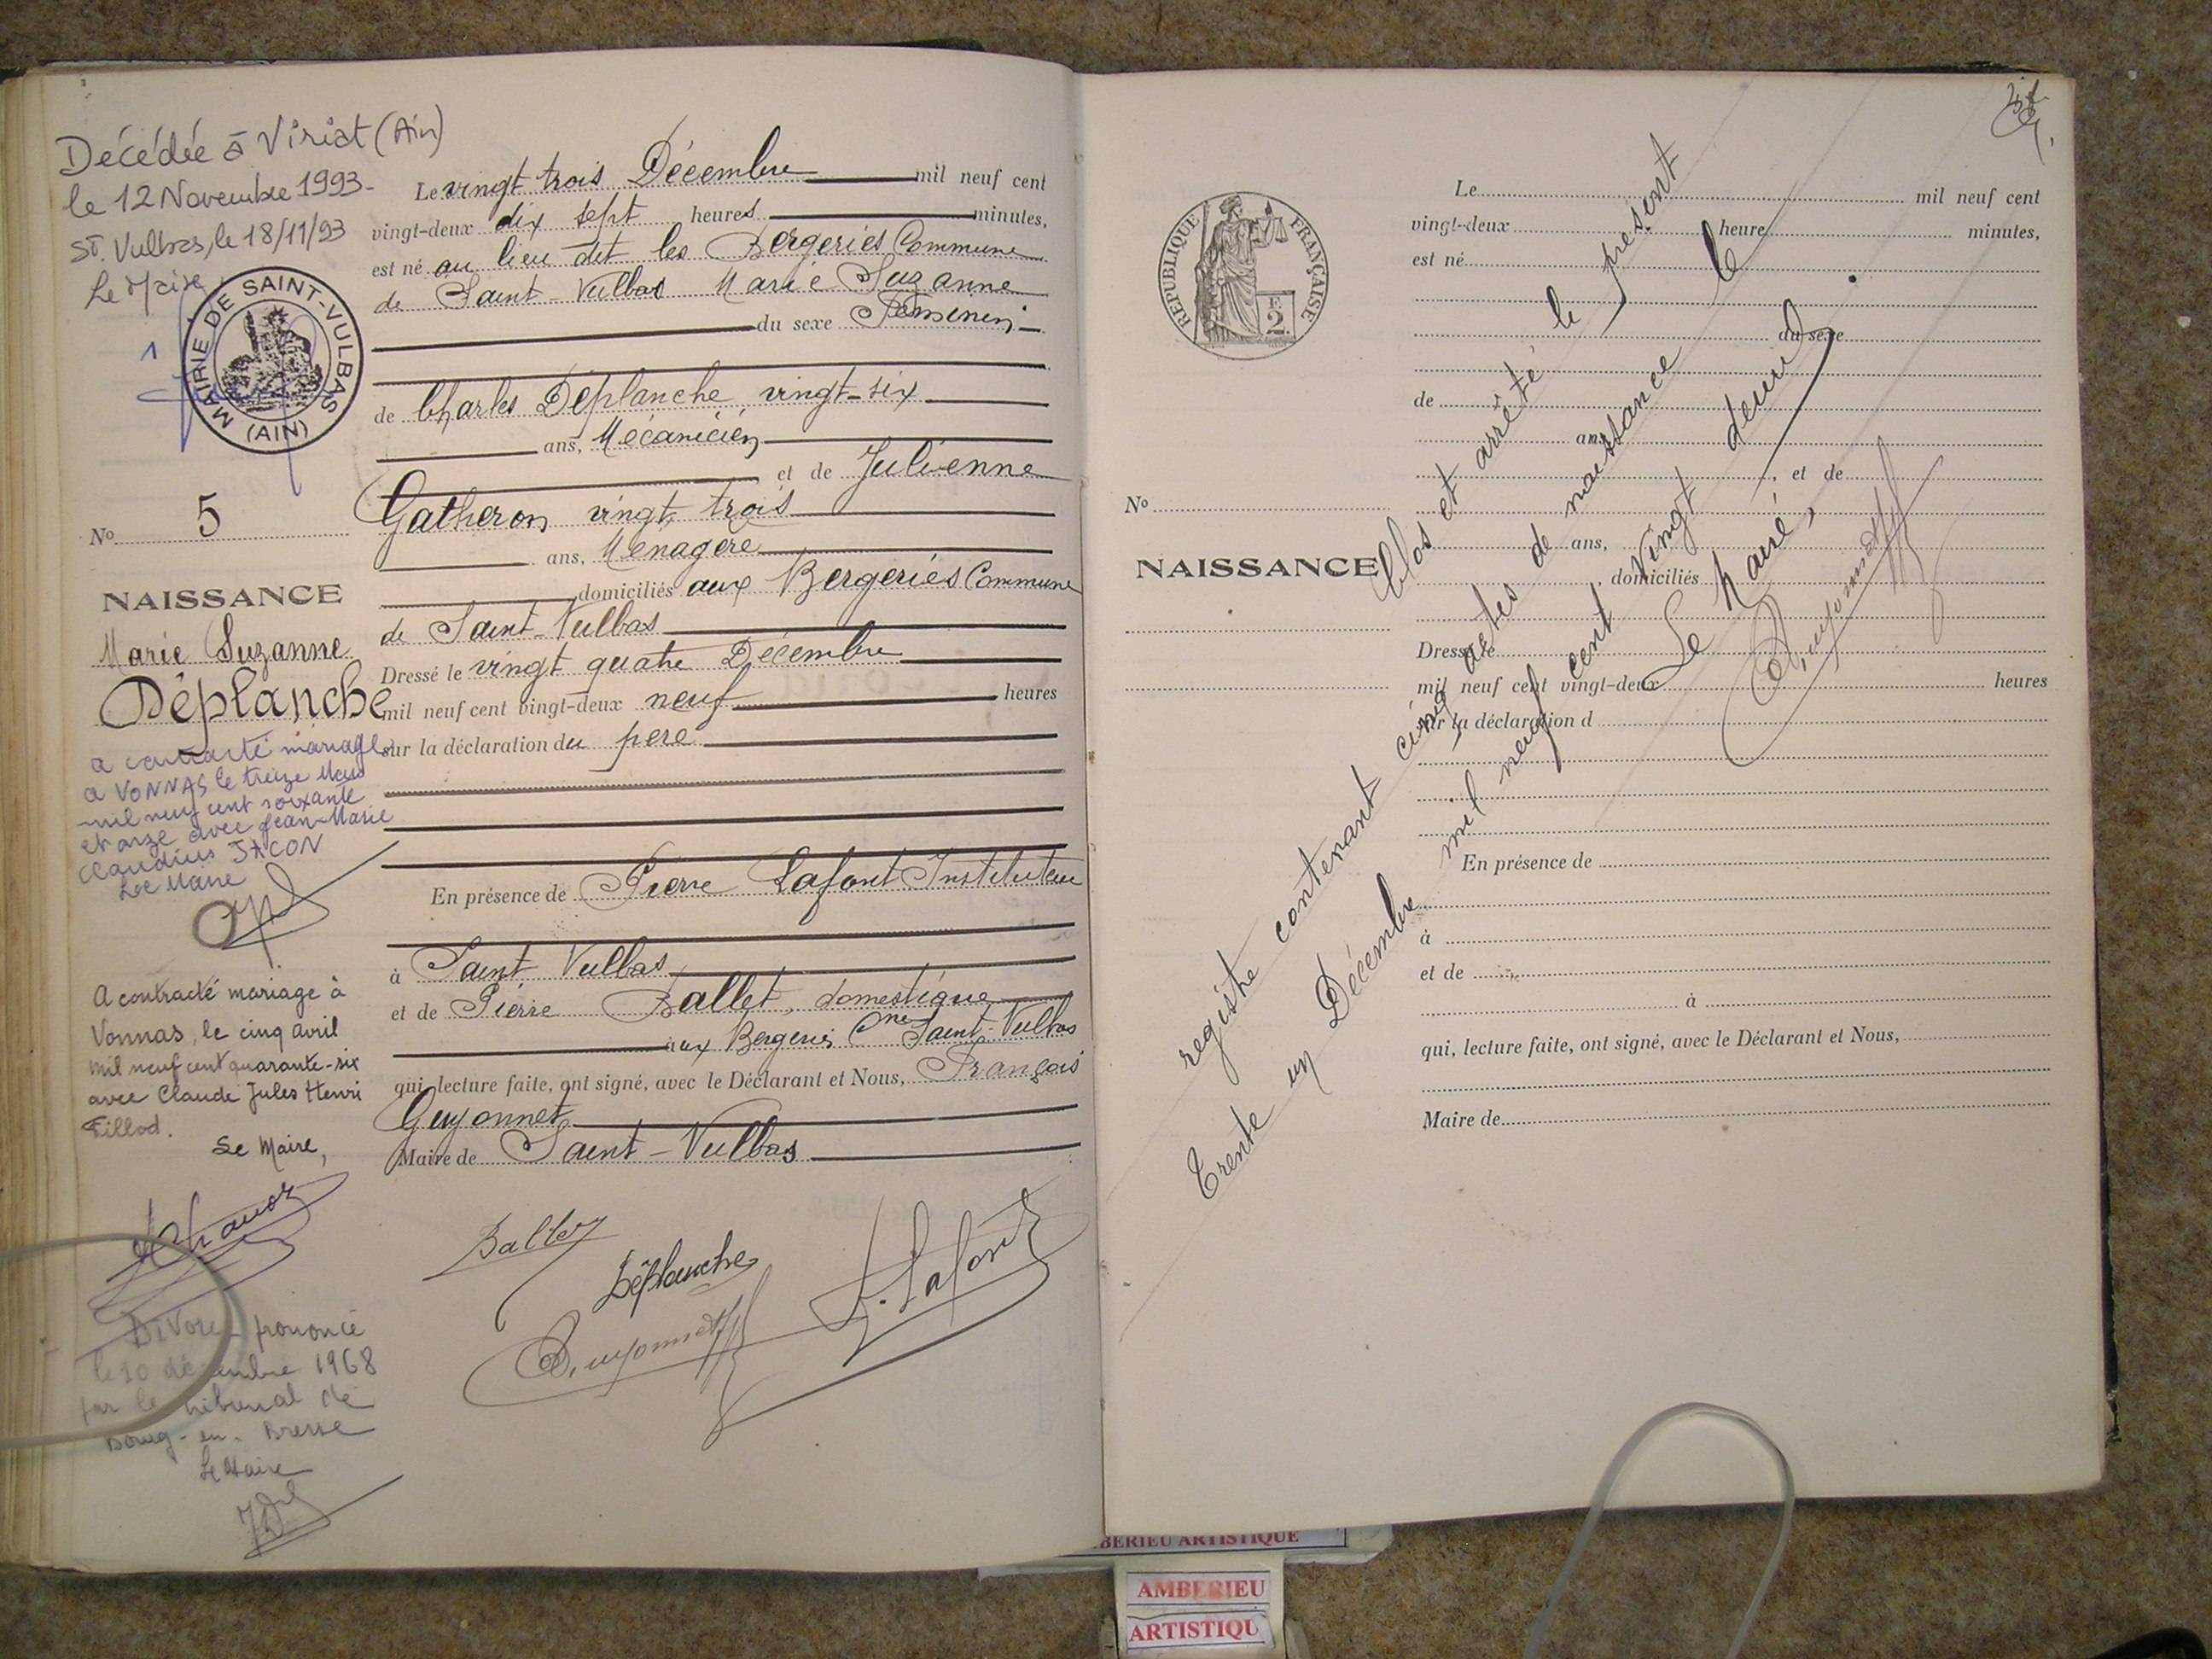 Décédée à Viriat (Ain)
le 12 Novembre 1993-
St. Vulbas, le 18/11/93
Le Maire
MAIRIE DE SAINT-VULBAS
(AIN)
No 5
NAISSANCE
Marie Suzanne
Déplanche
a contracté mariage
a VONNAS le treize Mars
mil neuf cent soixante
et onze avec Jean-Marie
Claudius JACON
Le Maire
A contracté mariage à
Vonnas, le cinq avril
mil neuf cent quarante-six
avec Claude Jules Henri
Fillod.
Le Maire,
Divorce prononcé
le 10 décembre 1968
par le tribunal de
Bourg-en-Bresse
Le Maire
Le vingt trois Décembre mil neuf cent
vingt-deux dix sept heures minutes,
est né au lieu dit les Bergeries Commune
de Saint-Vulbas Marie Suzanne
du sexe Féminin
de Charles Déplanche vingt-six
ans, Mécanicien
et de Julienne
Gatheron vingt trois
ans, Ménagère
domiciliés aux Bergeries Commune
de Saint-Vulbas
Dressé le vingt quatre Décembre
mil neuf cent vingt-deux neuf heures
sur la déclaration du père
En présence de Pierre Lafont Instituteur
à Saint Vulbas
et de Pierre Ballet, domestique
aux Bergeries Cne Saint-Vulbas
qui, lecture faite, ont signé, avec le Déclarant et Nous, François
Guyonnet
Maire de Saint-Vulbas
Ballet
Déplanche
Guyonnet
P. Lafont
RÉPUBLIQUE FRANÇAISE
E
2
No
NAISSANCE
Le mil neuf cent
vingt-deux heure minutes,
est né
du sexe
de
ans,
et de
ans,
domiciliés
Dressé le
mil neuf cent vingt-deux heures
sur la déclaration d
En présence de
à
et de
à
qui, lecture faite, ont signé, avec le Déclarant et Nous,
Maire de
Clos et arrêté le présent
registre contenant cinq actes de naissance le
Trente un Décembre mil neuf cent vingt deux.
Le Maire,
Guyonnet
BERIEU ARTISTIQUE
AMBERIEU
ARTISTIQU